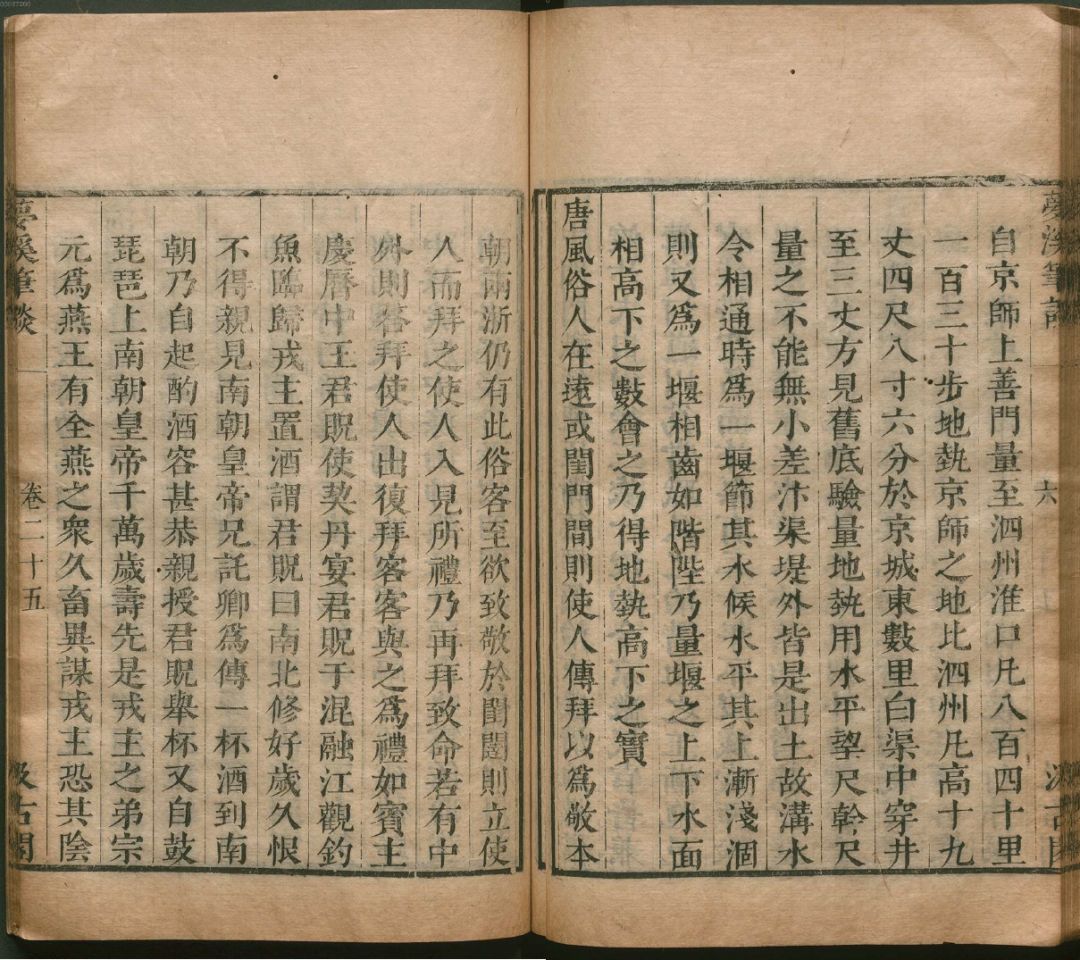 夢溪筆談
六
汲古閣
自京師上善門量至泗州淮口凡八百四十里
一百三十步地埶京師之地比泗州凡高十九
丈四尺八寸六分於京城東數里白渠中穿井
至三丈方見舊底驗量地埶用水平望尺幹尺
量之不能無小差汴渠堤外皆是出土故溝水
令相通時爲一堰節其水候水平其上漸淺涸
則又爲一堰相齒如階陛乃量堰之上下水面
相高下之數會之乃得地埶高下之實
唐風俗人在遠或閨門間則使人傳拜以爲敬本
朝兩浙仍有此俗客至欲致敬於閨闥則立使
人而拜之使人入見所禮乃再拜致命若有中
外則荅拜使人出復拜客客與之爲禮如賓主
慶曆中王君貺使契丹宴君貺于混融江觀釣
魚臨歸戎主置酒謂君貺曰南北修好歲久恨
不得親見南朝皇帝兄託卿爲傳一杯酒到南
朝乃自起酌酒容甚恭親授君貺舉杯又自鼓
琵琶上南朝皇帝千萬歲壽先是戎主之弟宗
元爲燕王有全燕之衆久畜異謀戎主恐其陰
夢溪筆談
卷二十五
汲古閣